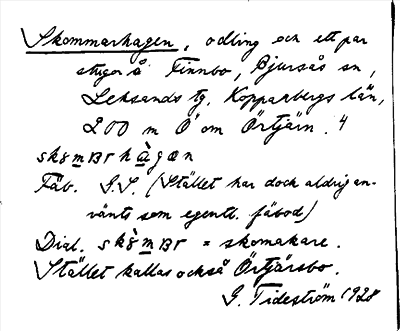 Skommarhagen, odling och ett par
stugor å Finnbo, Bjursås sn,
Leksands tg. Kopparbergs län,
200 m Ö om Örtjärn. 4
Fäb. S.S. (Stället har dock aldrig an-
vänts som egentl. fäbod)
Dial. = skomakare.
Stället kallas också Örtjärsbo.
G. Tideström 1928